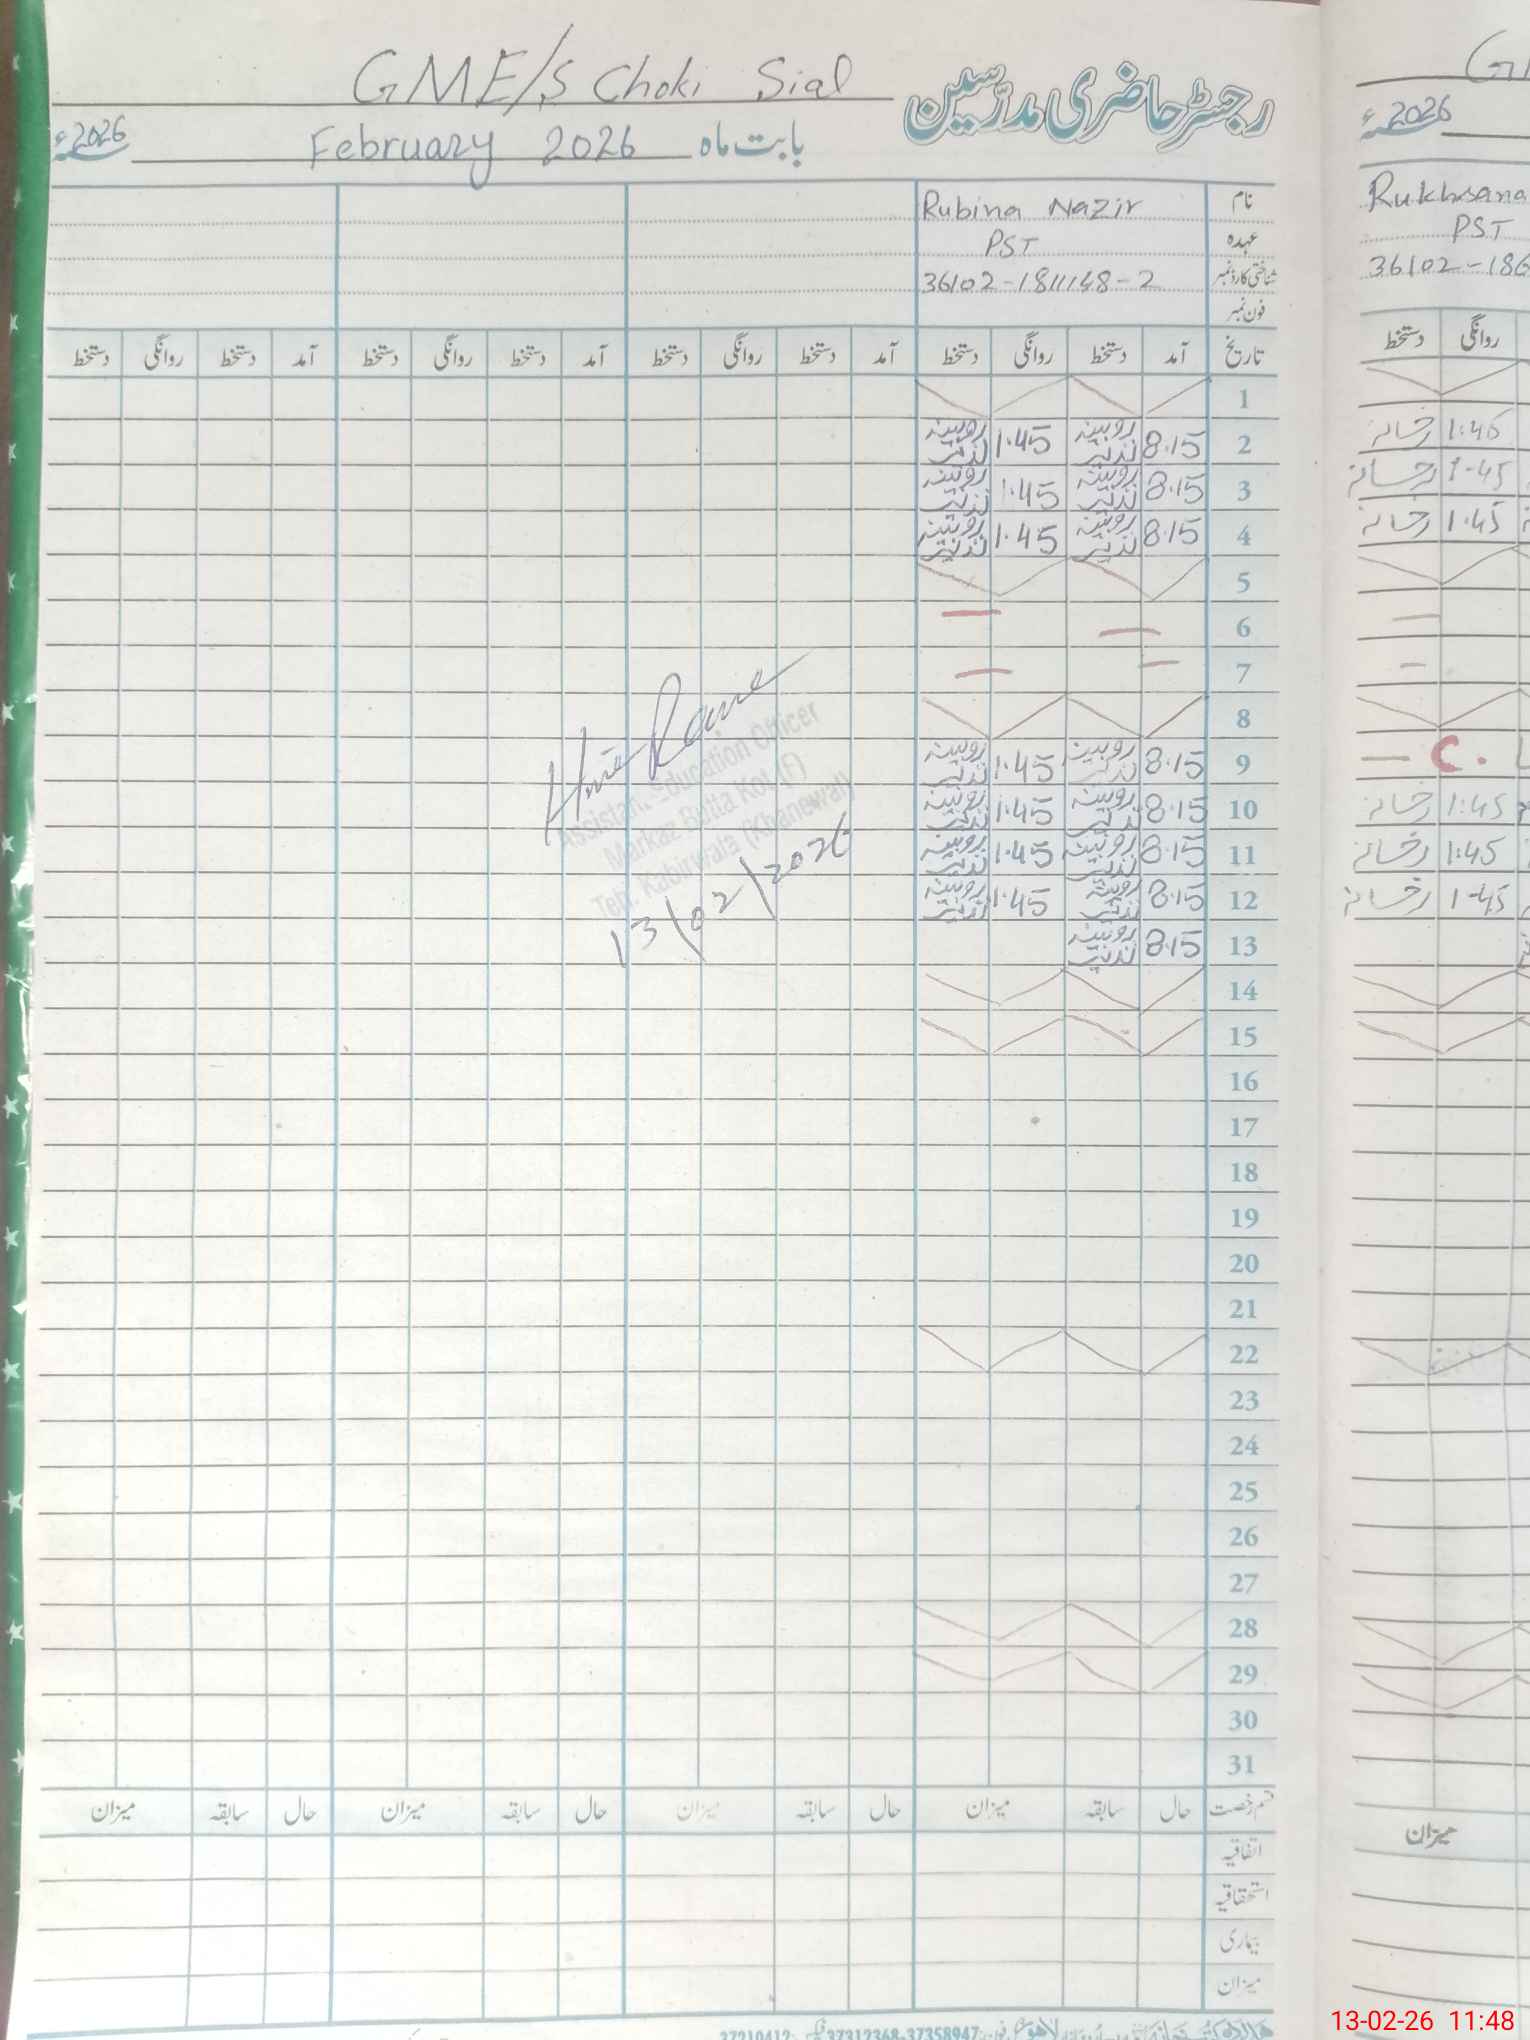 GME/S Choki Sial رجسٹر حاضری مدرسین
بابت ماہ February 2026 2026ء
نام Rubina Nazir
عہدہ PST
شناختی کارڈ نمبر 36102-1811148-2
فون نمبر
تاریخ آمد دستخط روانگی دستخط آمد دستخط روانگی دستخط آمد دستخط روانگی دستخط آمد دستخط روانگی دستخط
1
2 8.15 روبینہ نذیر 1.45 روبینہ نذیر
3 8.15 روبینہ نذیر 1.45 روبینہ نذیر
4 8.15 روبینہ نذیر 1.45 روبینہ نذیر
5
6
7
8
9 8.15 روبینہ نذیر 1.45 روبینہ نذیر
10 8.15 روبینہ نذیر 1.45 روبینہ نذیر
11 8.15 روبینہ نذیر 1.45 روبینہ نذیر
12 8.15 روبینہ نذیر 1.45 روبینہ نذیر
13 8.15 روبینہ نذیر
14
15
16
17
18
19
20
21
22
23
24
25
26
27
28
29
30
31
Assistant Education Officer
Markaz Butta Kot (F)
Teh. Kabirwala (Khanewal)
13/02/2026
قسم رخصت حال سابقہ میزان حال سابقہ میزان حال سابقہ میزان حال سابقہ میزان
اتفاقیہ
استحقاقیہ
بیماری
میزان
37210412 37312368-37358947
2026ء
Rukhsana
PST
36102-186
روانگی دستخط
1:45 رخسانہ
1-45 رخسانہ
1.45 رخسانہ
C.
1:45 رخسانہ
1:45 رخسانہ
1-45 رخسانہ
میزان
13-02-26 11:48